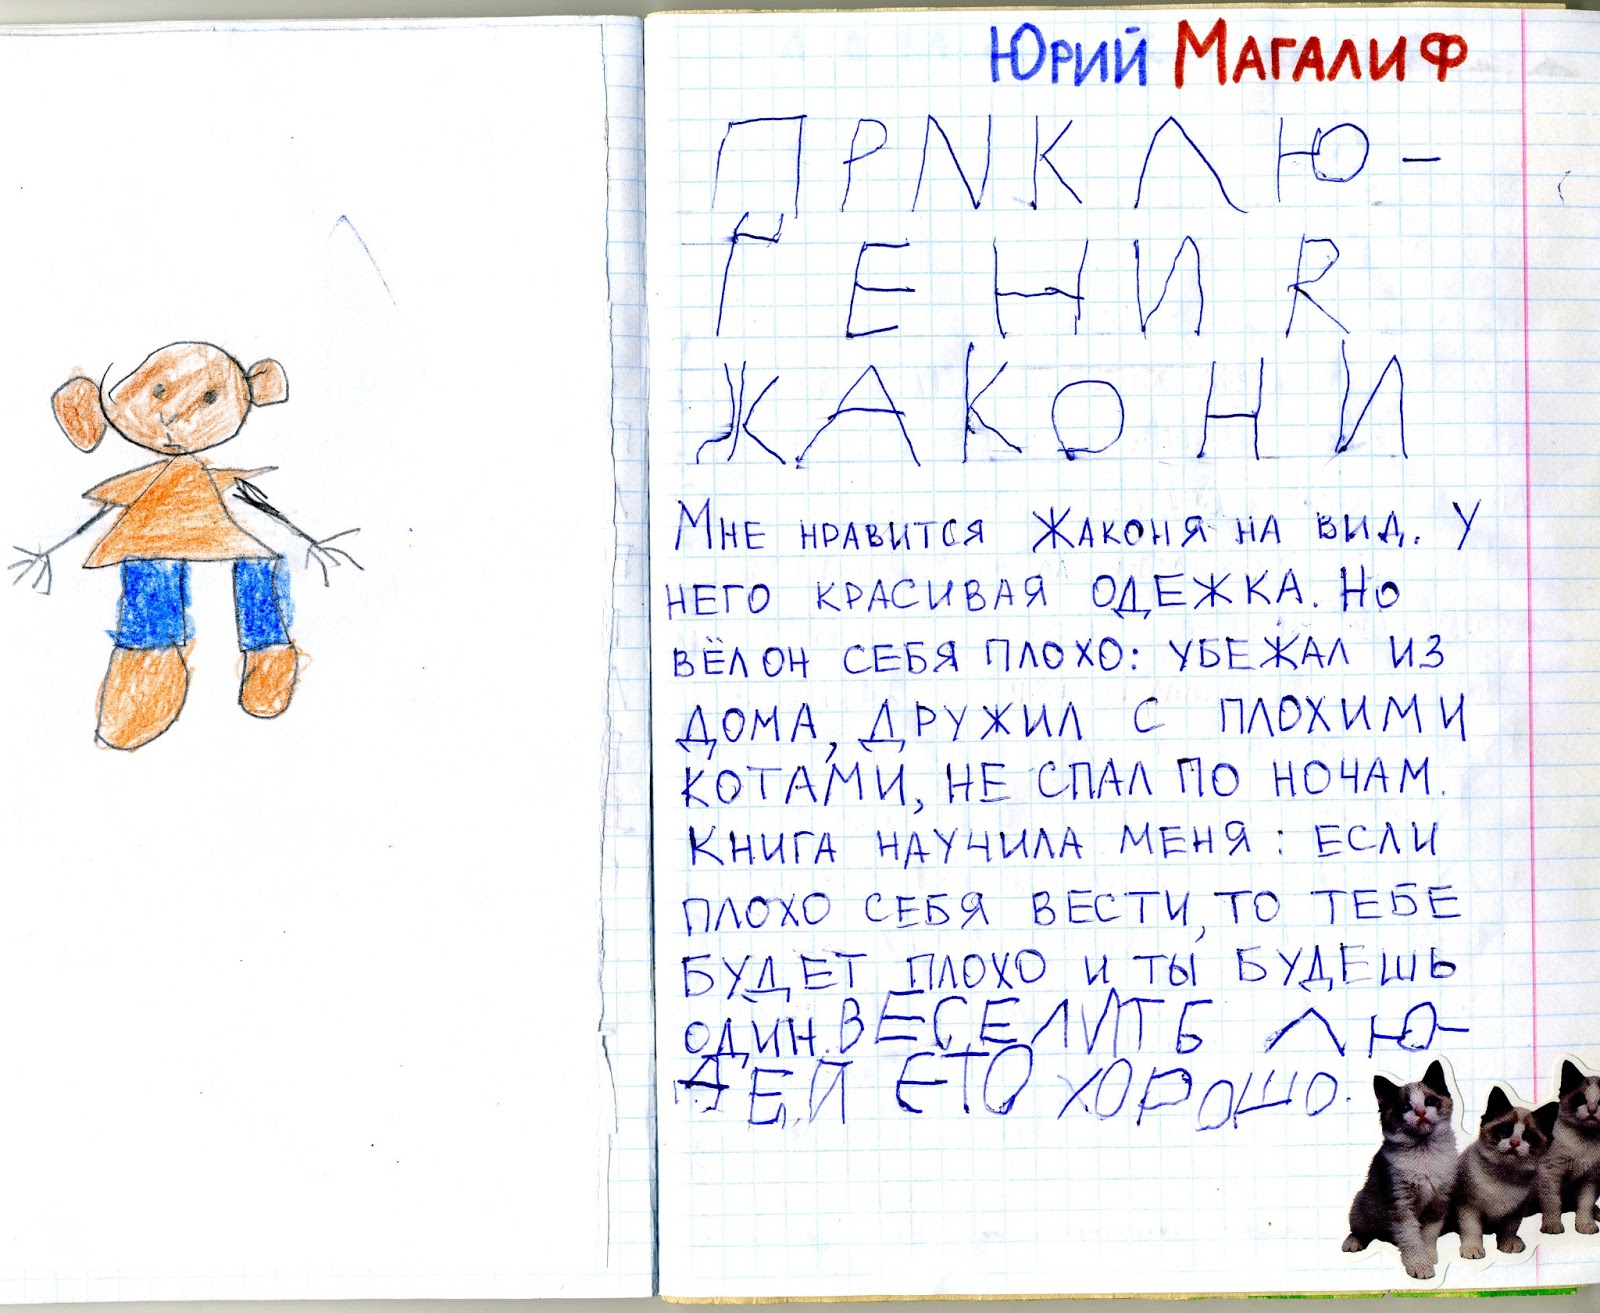 Юрий Магалиф
ПРИКЛЮ-
ЧЕНИЯ
ЖАКОНИ
Мне нравится Жаконя на вид. У
него красивая одежка. Но
вёл он себя плохо: убежал из
дома, дружил с плохими
котами, не спал по ночам.
Книга научила меня: если
плохо себя вести, то тебе
будет плохо и ты будешь
один. ВЕСЕЛИТЬ ЛЮ-
ДЕЙ ЕТО ХОРОШО.